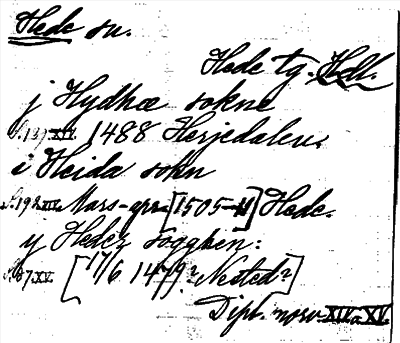 Hede sn.
Hede tg. Hdl.
j Hydhæ sokne
S. 137 XIV. 1488 Herjedalen.
i Heida sokn
S. 192 XIV. Mars-apr. [1505-11] Hede.
y Hedez soghen:
S. 87 XV. [17/6 1479? Nested?]
Dipl. norv XIV o XV.